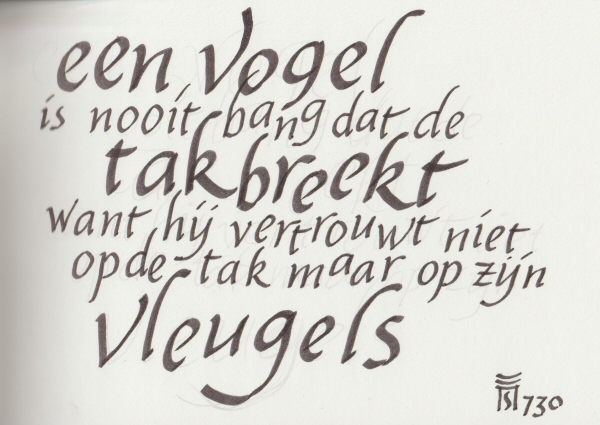 een vogel
is nooit bang dat de
tak breekt
want hij vertrouwt niet
op de tak maar op zijn
vleugels
730